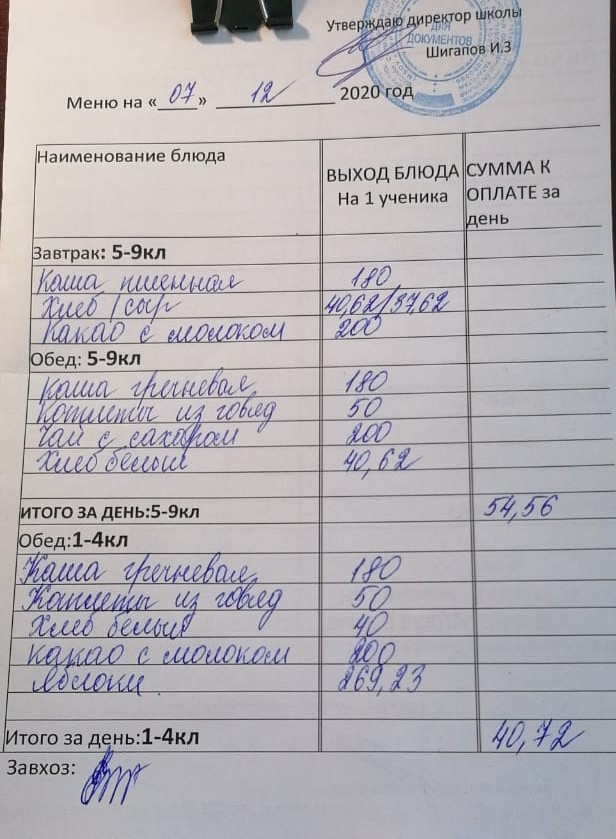 Утверждаю директор школы
ДЛЯ
ДОКУМЕНТОВ
Шигапов И.З
Меню на «07» 12 2020 год
Наименование блюда ВЫХОД БЛЮДА На 1 ученика СУММА К ОПЛАТЕ за день
Завтрак: 5-9кл
Каша пшенная 180
Хлеб/сыр 40,62/37,62
Какао с молоком 200
Обед: 5-9кл
Каша гречневая 180
Котлеты из говяд 50
Чай с сахаром 200
Хлеб белый 40,62
ИТОГО ЗА ДЕНЬ:5-9кл 54,56
Обед:1-4кл
Каша гречневая 180
Котлеты из говяд 50
Хлеб белый 40
Какао с молоком 200
Яблоки 269,23
Итого за день:1-4кл 40,72
Завхоз: